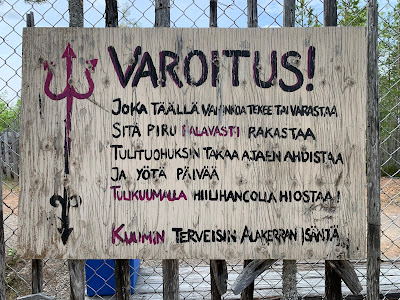 VAROITUS!
JOKA TÄÄLLÄ VAHINKOA TEKEE TAI VARASTAA
SITÄ PIRU PALAVASTI RAKASTAA
TULITUOHUKSIN TAKAA AJAEN AHDISTAA
JA YÖTÄ PÄIVÄÄ
TULIKUUMALLA HIILIHANGOLLA HIOSTAA!
KUUMIN TERVEISIN ALAKERRAN ISÄNTÄ